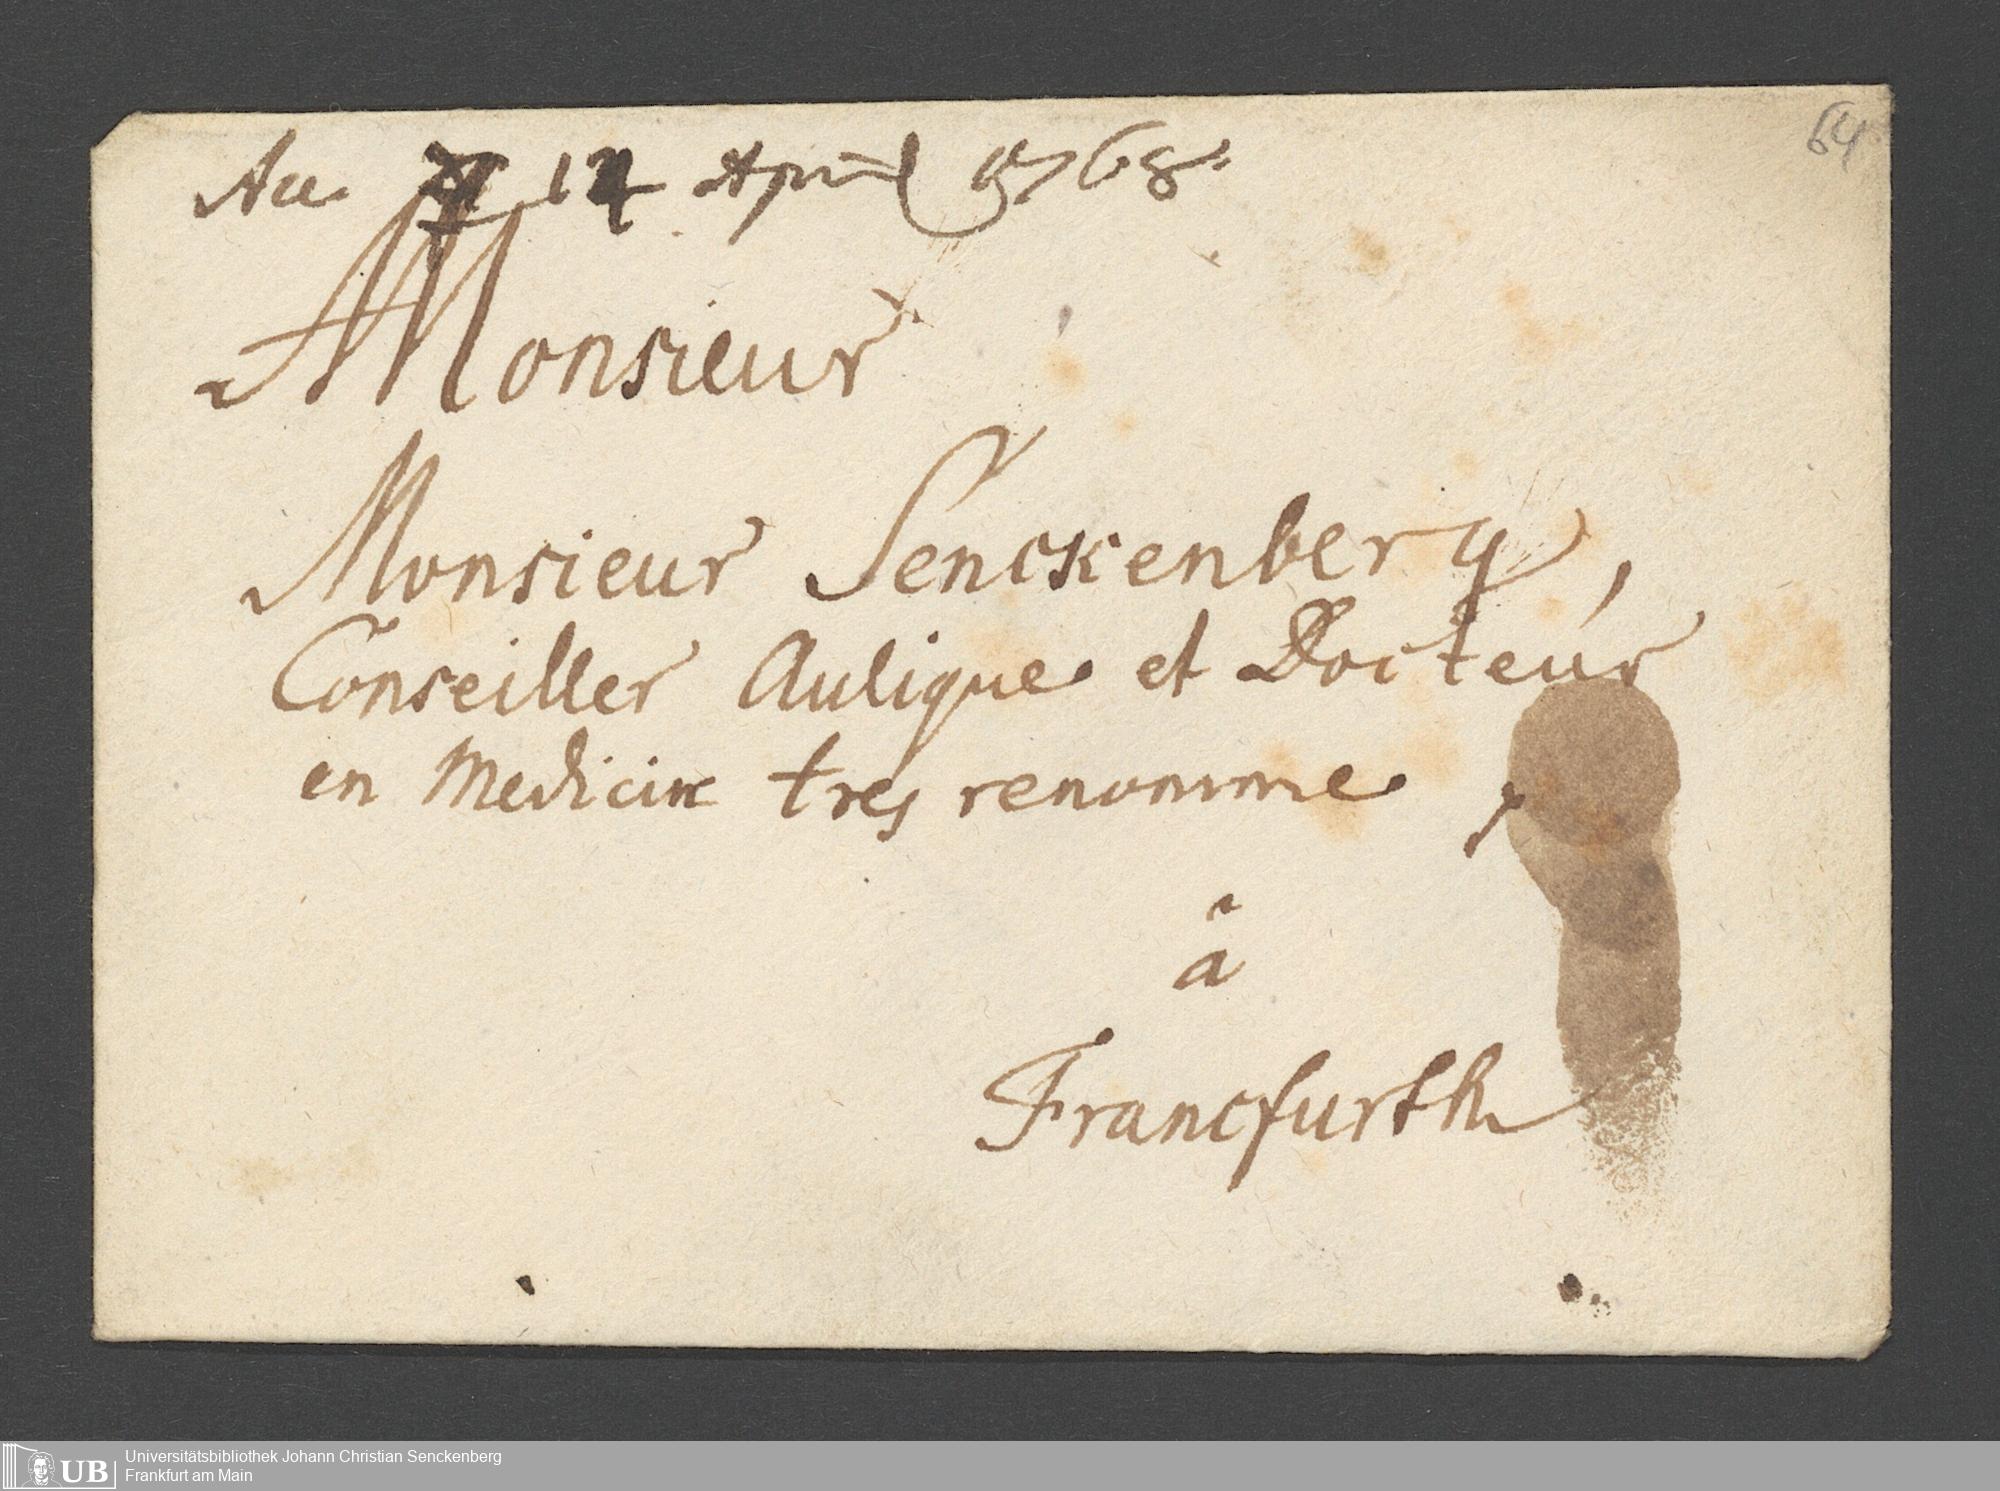 Acc. 12 April 1768.
64
Monsieur
Monsieur Senckenberg,
Conseiller Aulique et Docteur
en Medicine tres renomme,
â
Francfurth
Universitätsbibliothek Johann Christian Senckenberg
Frankfurt am Main
UB